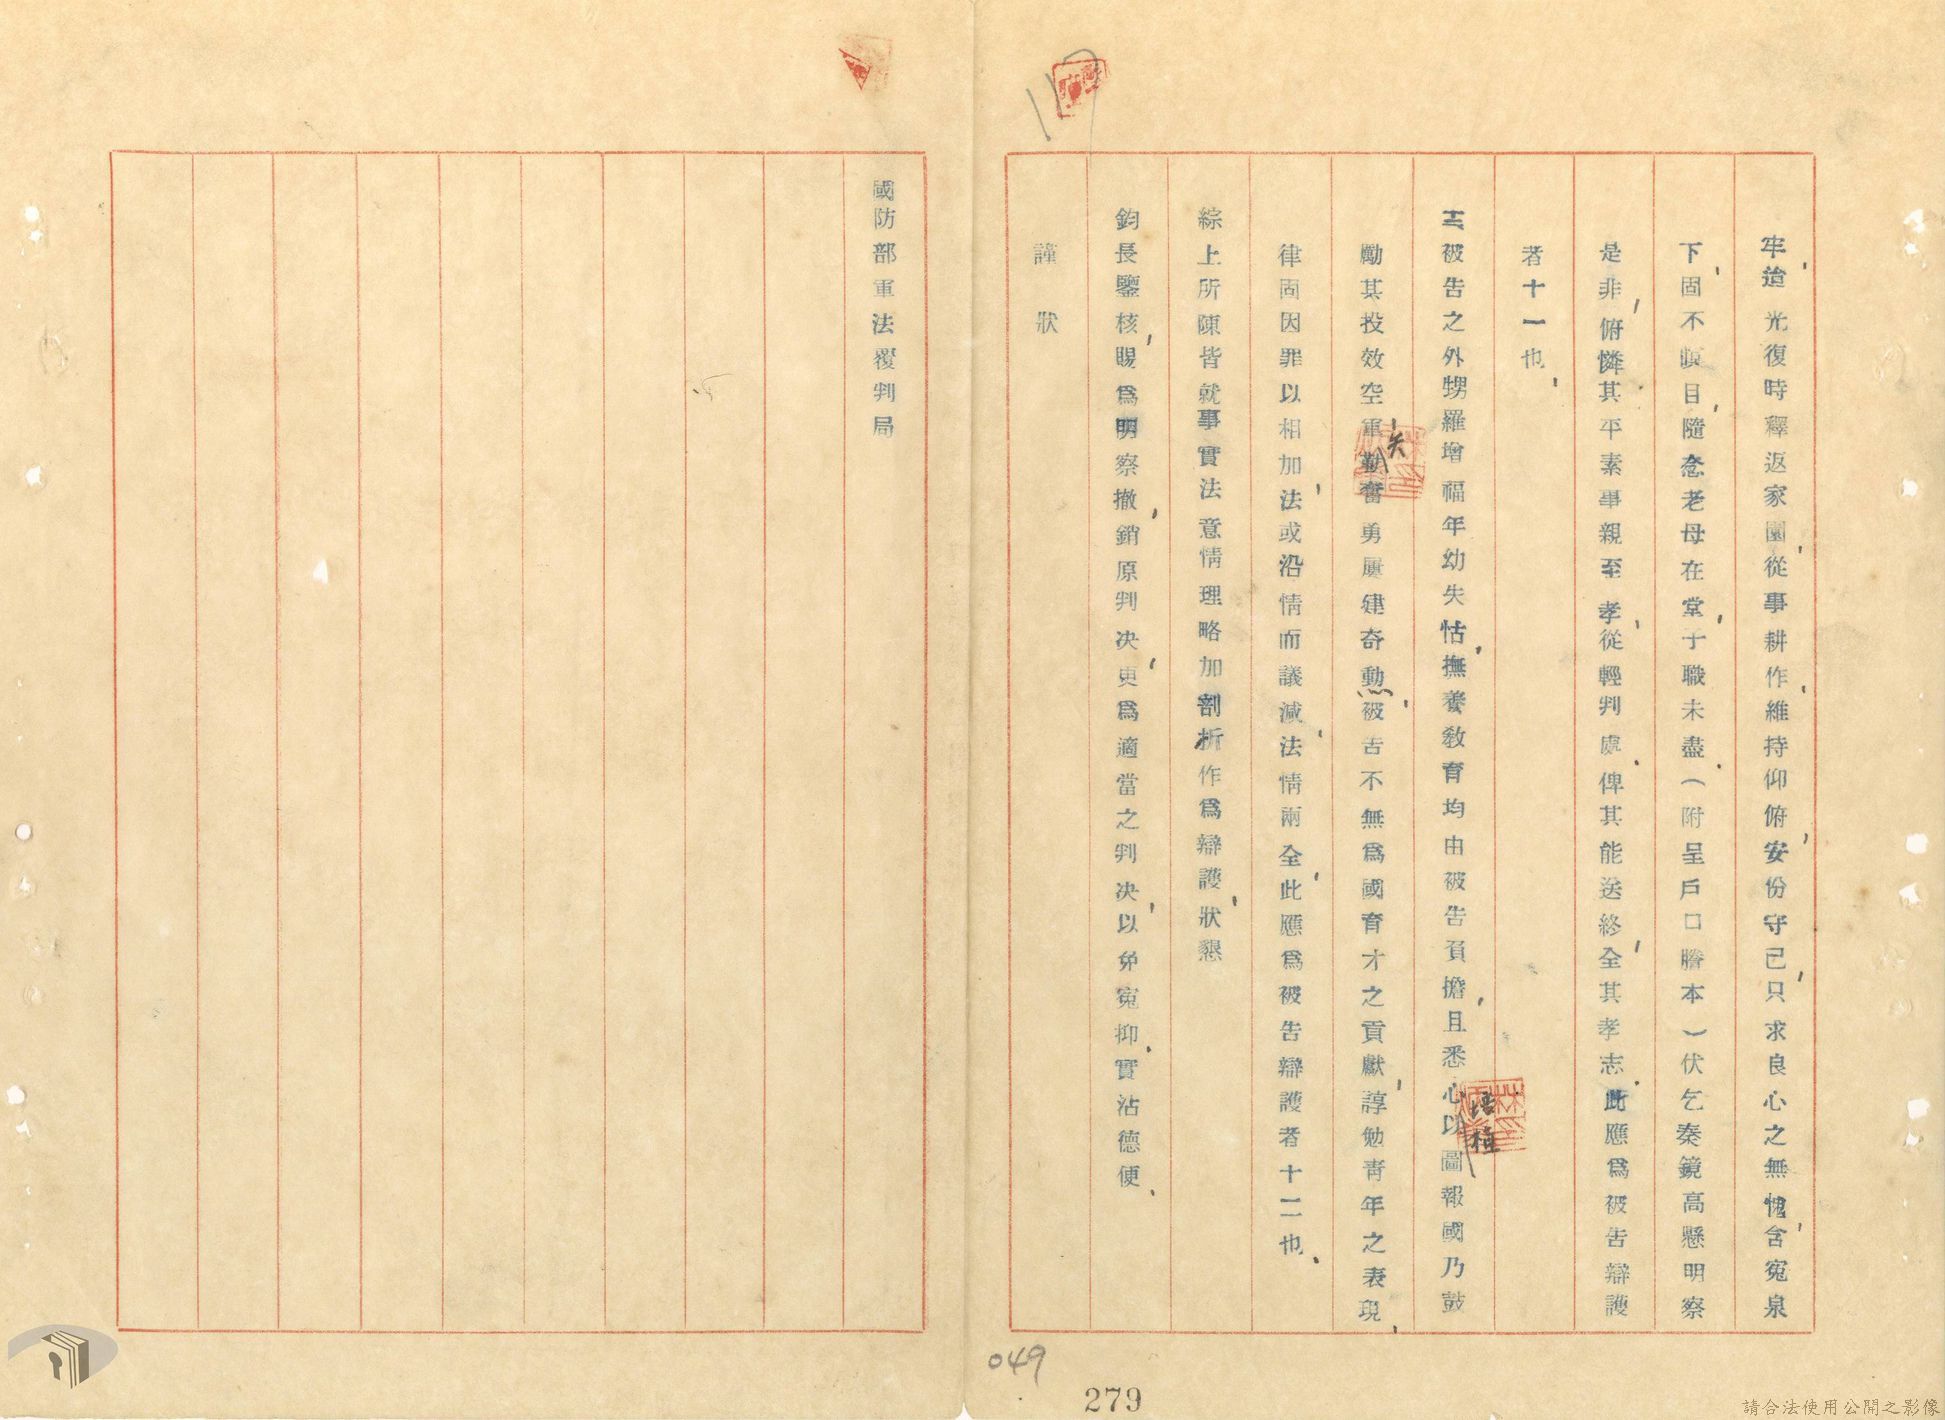 牢迨光復時釋返家園，從事耕作，維持仰俯，安份守己，只求良心之無愧，含寃泉
下，固不瞑目，隨念老母在堂，子職未盡，（附呈戶口謄本）伏乞秦鏡高懸明察
是非，俯憐其平素事親至孝，從輕判處，俾其能送終，全其孝志，此應爲被告辯護
者十一也，
十二、被告之外甥羅增福年幼失怙，撫養教育均由被告負擔，且悉心培植以圖報國乃鼓
勵其投效空軍，矢勤奮勇屢建奇勳，被告不無爲國育才之貢獻，諄勉青年之表現，
律固因罪以相加，法或沿情而議減，法情兩全，此應爲被告辯護者十二也，
綜上所陳皆就事實法意情理略加剖析作爲辯護，狀懇
鈞長鑒核，賜爲明察撤，銷原判決，更爲適當之判決，以免寃抑，實沾德便，
謹狀
國防部軍法覆判局
117
049
279
請合法使用公開之影像